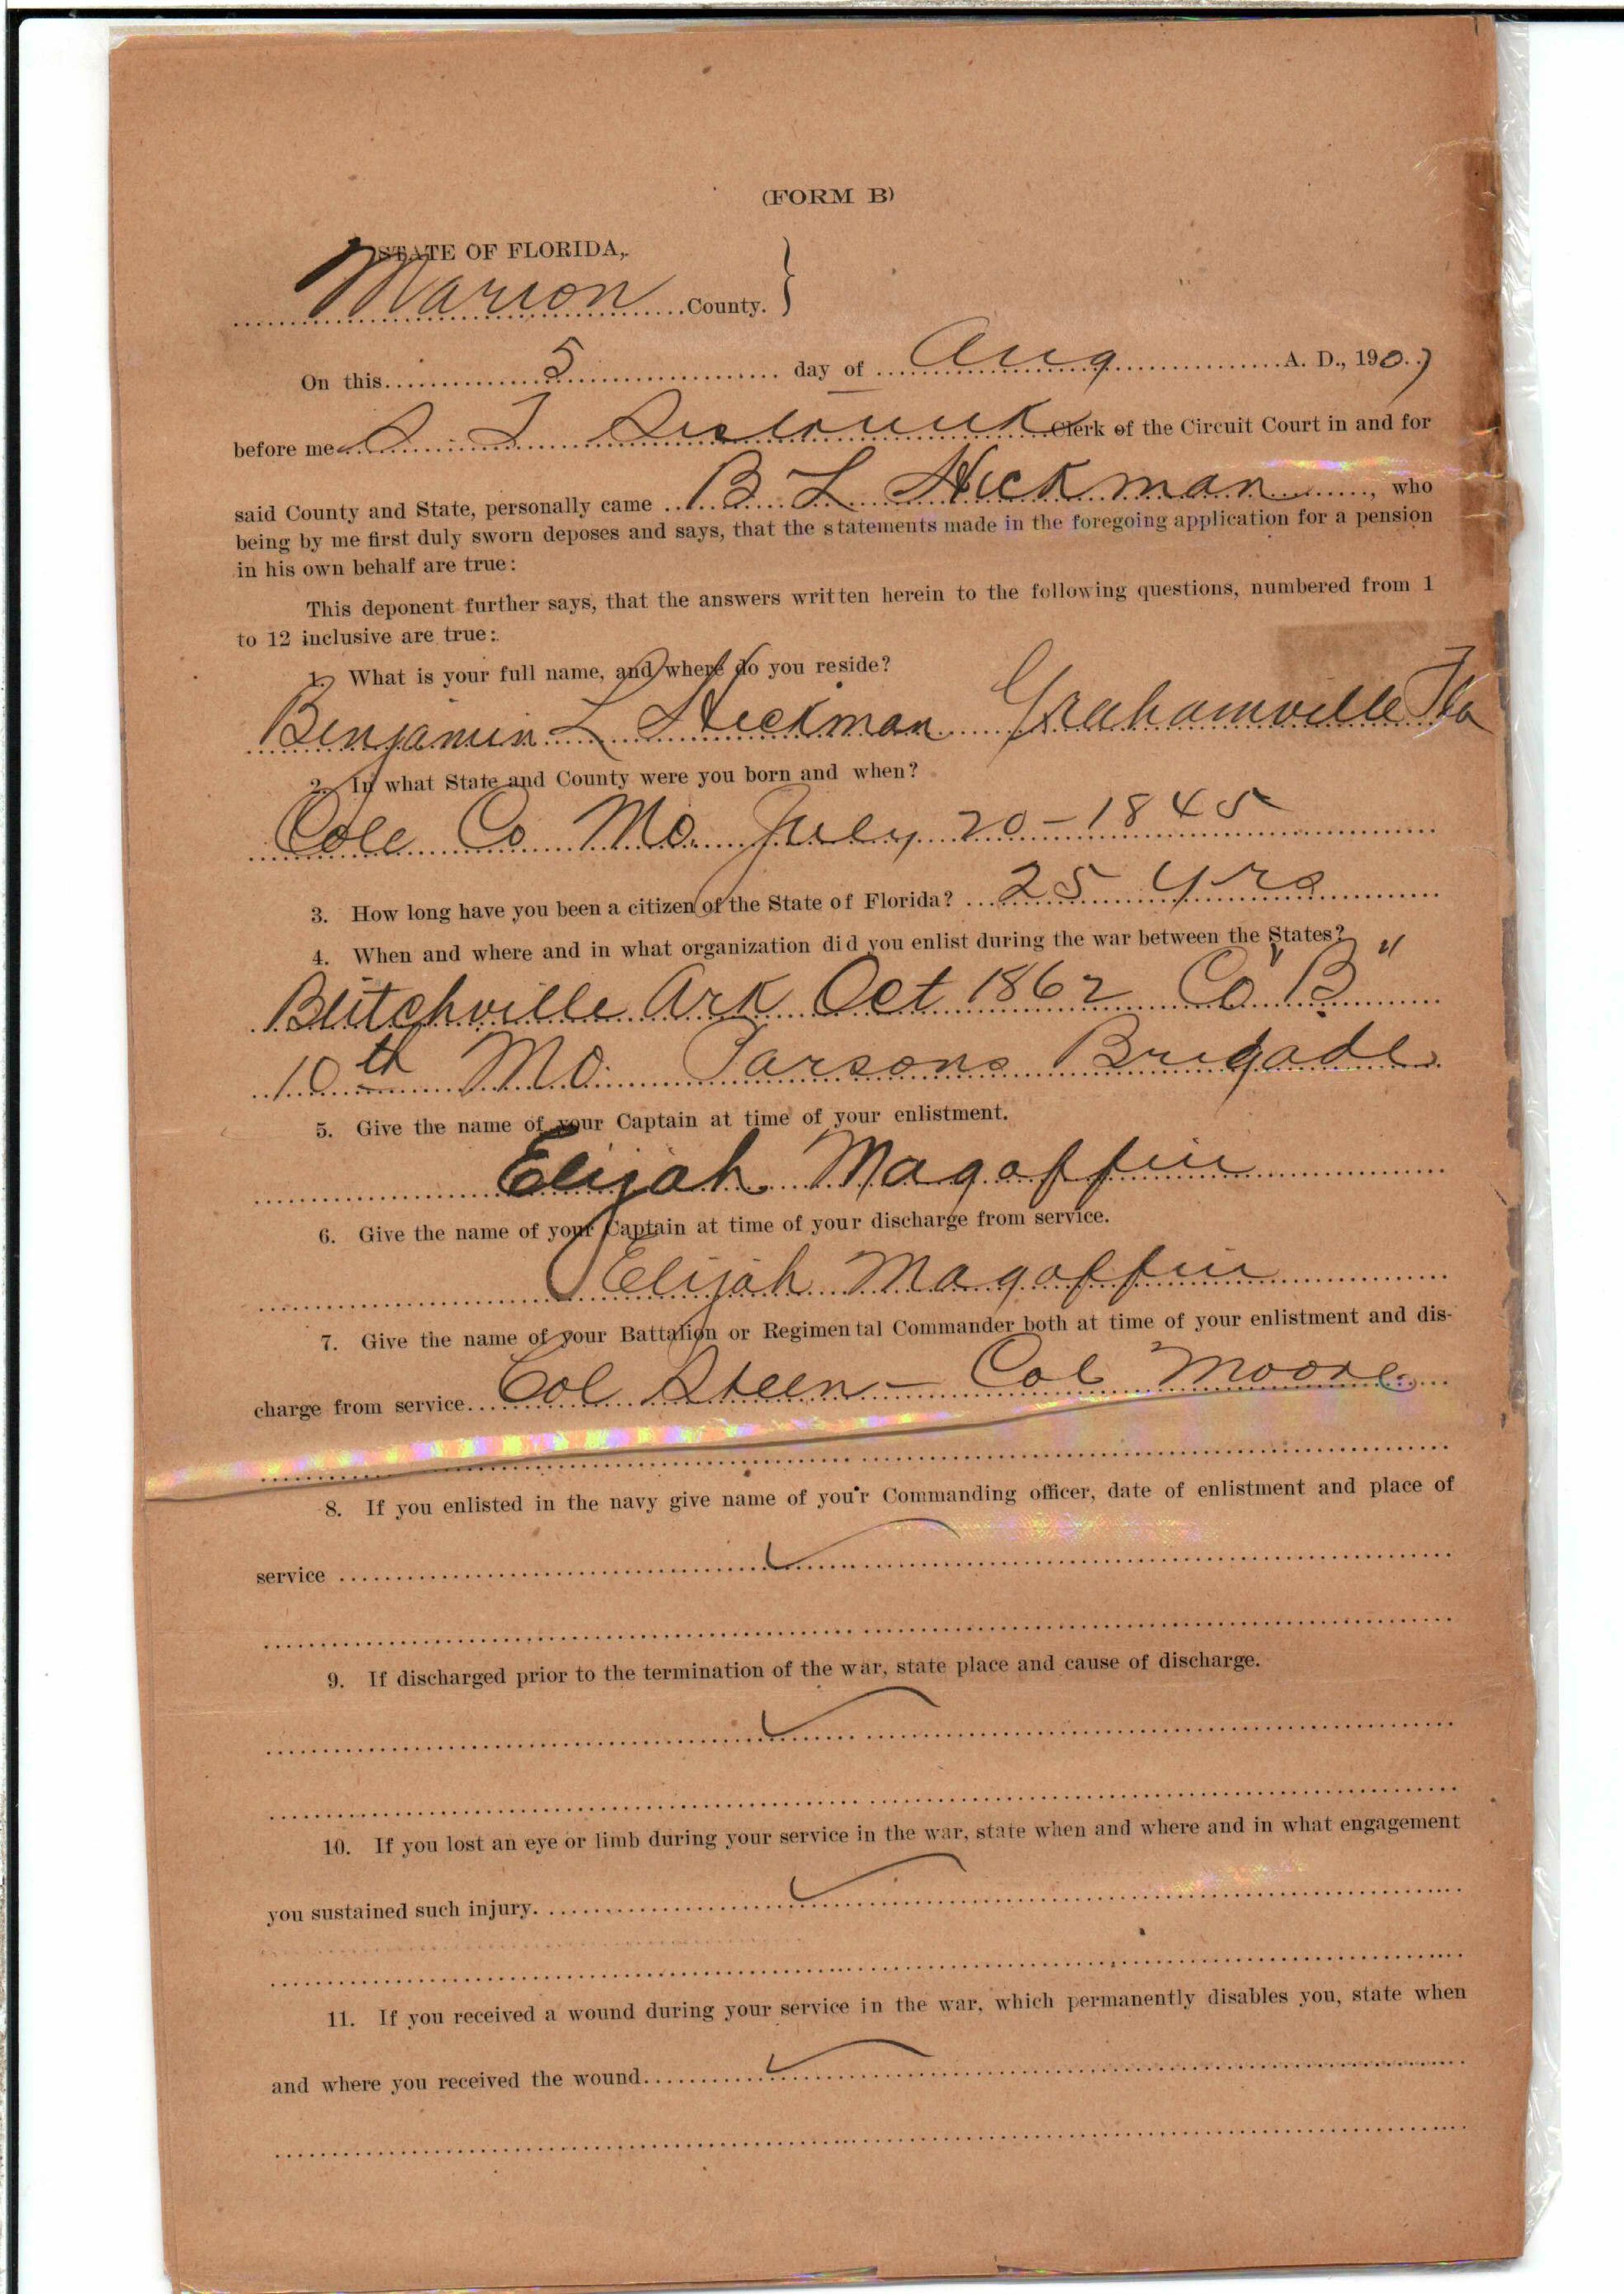 (FORM B)
STATE OF FLORIDA,
Marion County. }
On this 5 day of Aug A. D., 1907
before me S T Sistrunk Clerk of the Circuit Court in and for
said County and State, personally came B L Hickman, who
being by me first duly sworn deposes and says, that the statements made in the foregoing application for a pension
in his own behalf are true:
This deponent further says, that the answers written herein to the following questions, numbered from 1
to 12 inclusive are true:
1. What is your full name, and where do you reside?
Benjamin L Hickman Grahamville Fla
2. In what State and County were you born and when?
Cole Co Mo. July 20-1845
3. How long have you been a citizen of the State of Florida? 25 yrs
4. When and where and in what organization did you enlist during the war between the States?
Blitchville Ark Oct 1862 Co "B"
10th Mo. Parsons Brigade
5. Give the name of your Captain at time of your enlistment.
Elijah Magoffin
6. Give the name of your Captain at time of your discharge from service.
Elijah Magoffin
7. Give the name of your Battalion or Regimental Commander both at time of your enlistment and dis-
charge from service. Col Steen - Col Moore
8. If you enlisted in the navy give name of your Commanding officer, date of enlistment and place of
service
9. If discharged prior to the termination of the war, state place and cause of discharge.
10. If you lost an eye or limb during your service in the war, state when and where and in what engagement
you sustained such injury.
11. If you received a wound during your service in the war, which permanently disables you, state when
and where you received the wound